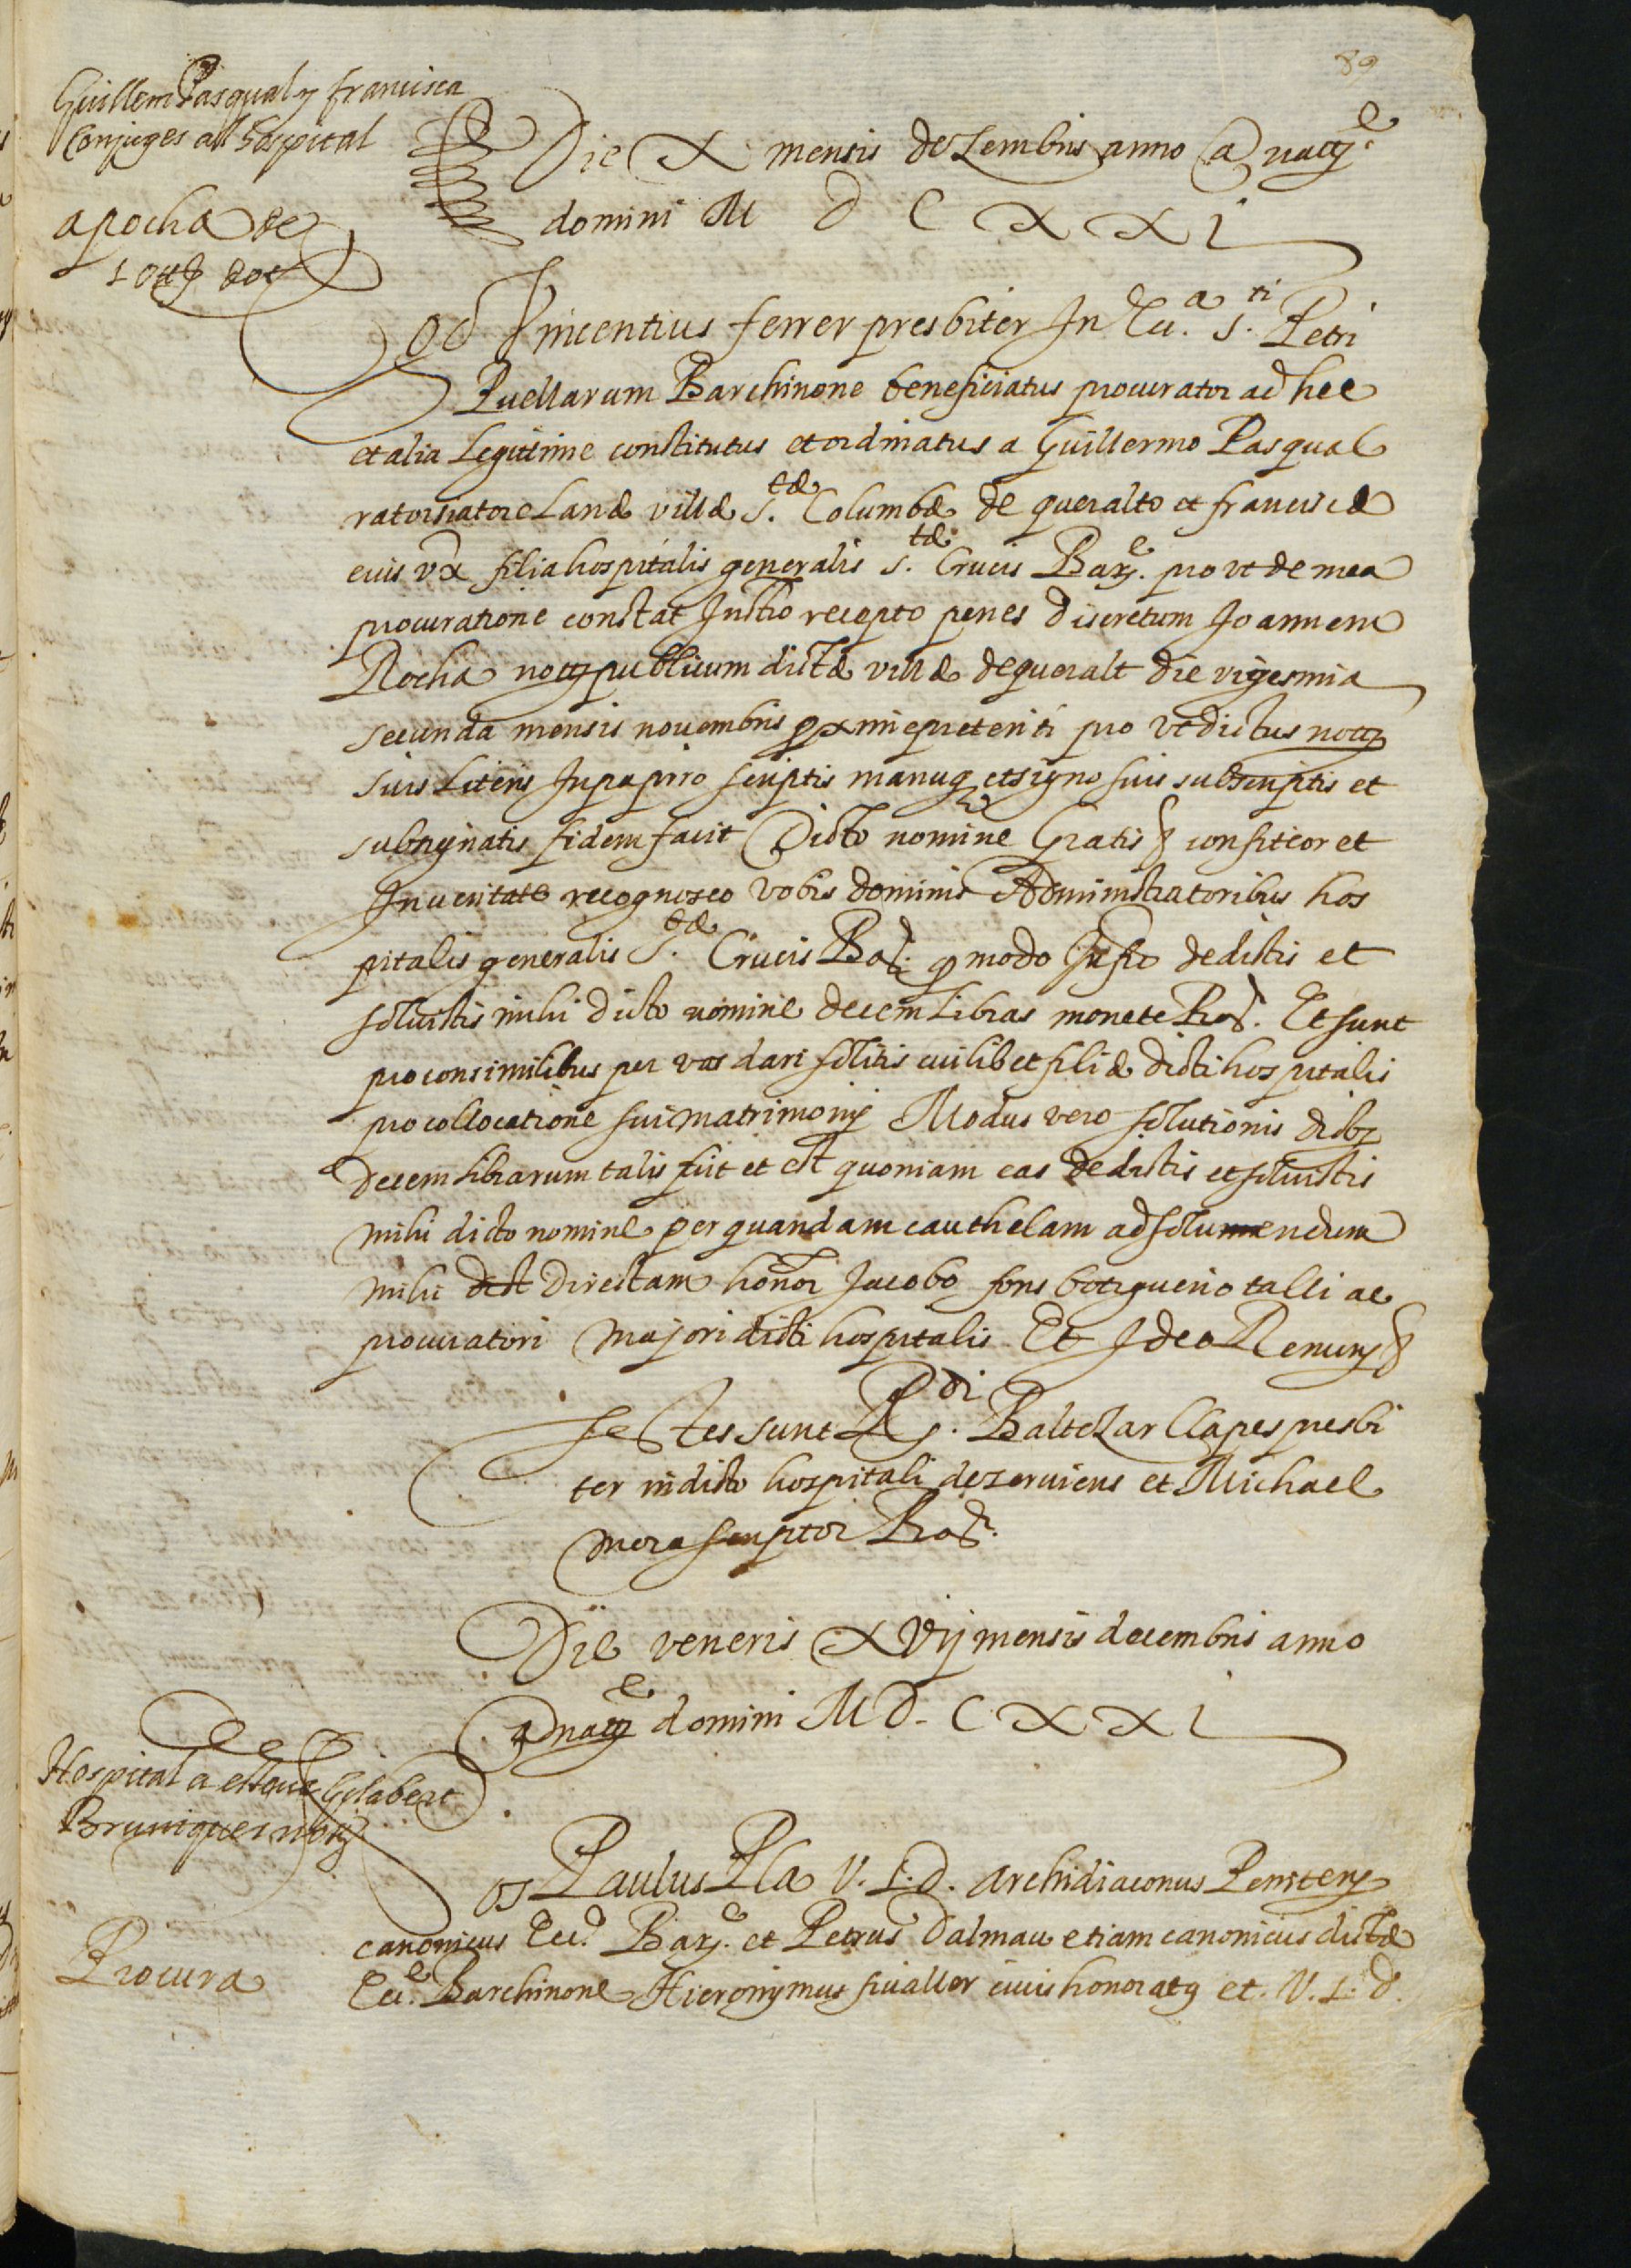 89
Guillem Pasqual y francisca
Conjuges al hospital
apocha de
10 ℔ dot
Die X mensis dezembris anno a natte
domini M D C X X I
Ego Vincentius ferrer presbiter In Ecc.a S.ti Petri
Puellarum Barchinone beneficiatus procurator ad hec
et alia Legitime constitutus et ordinatus a Guillermo Pasqual
Lanæ villæ S.tæ Columbæ de queralto et franciscæ
eius vx filia hospitalis generalis S.tæ Crucis Bar.e pro vt de mea
procuratione constat Instto recepto penes discretum Joannem
Rocha nott publicum dictæ villæ de queralt die vigesima
secunda mensis novembris pxime preteriti pro vt dictus nott
suis Literis In papiro scriptis manuq et signo suis subscriptis et
subsignatis fidem facit Dicto nomine Gratis & confiteor et
In veritate recognosco vobis dominis Administratoribus hos
pitalis generalis S.tæ Crucis Bar. q modo Infro dedistis et
soluistis mihi dicto nomine decem Libras monete Bar. Et sunt
pro consimilibus per vos dari solitis cuilibet filiæ dicti hospitalis
pro collocatione sui matrimonij Modus vero solutionis dictz
decem Librarum talis fuit et est quoniam eas dedistis et soluistis
mihi dicto nomine per quandam cauthelam ad soluendum
mihi dict directam honor Jacobo fons botiguerio talli ac
procuratori majori dicti hospitalis Et Ideo Renun &
Testes sunt R.di Baltezar Clapes presbi
ter in dicto hospitali deserviens et Michael
mora scriptor Bar.
Die veneris X Vij mensis decembris anno
a natte domini M D. C X X I
Hospital a esteue Gilabert
Bruniquer nott
Procura
Nos Paulus Pla V. I. d. archidiaconus Penitens
canonicus Ecc.e Bar.e et Petrus Dalmau etiam canonicus dictæ
Ecc.e Barchinone Hieronymus fiualler ciuis honoratq et. V. I. d.